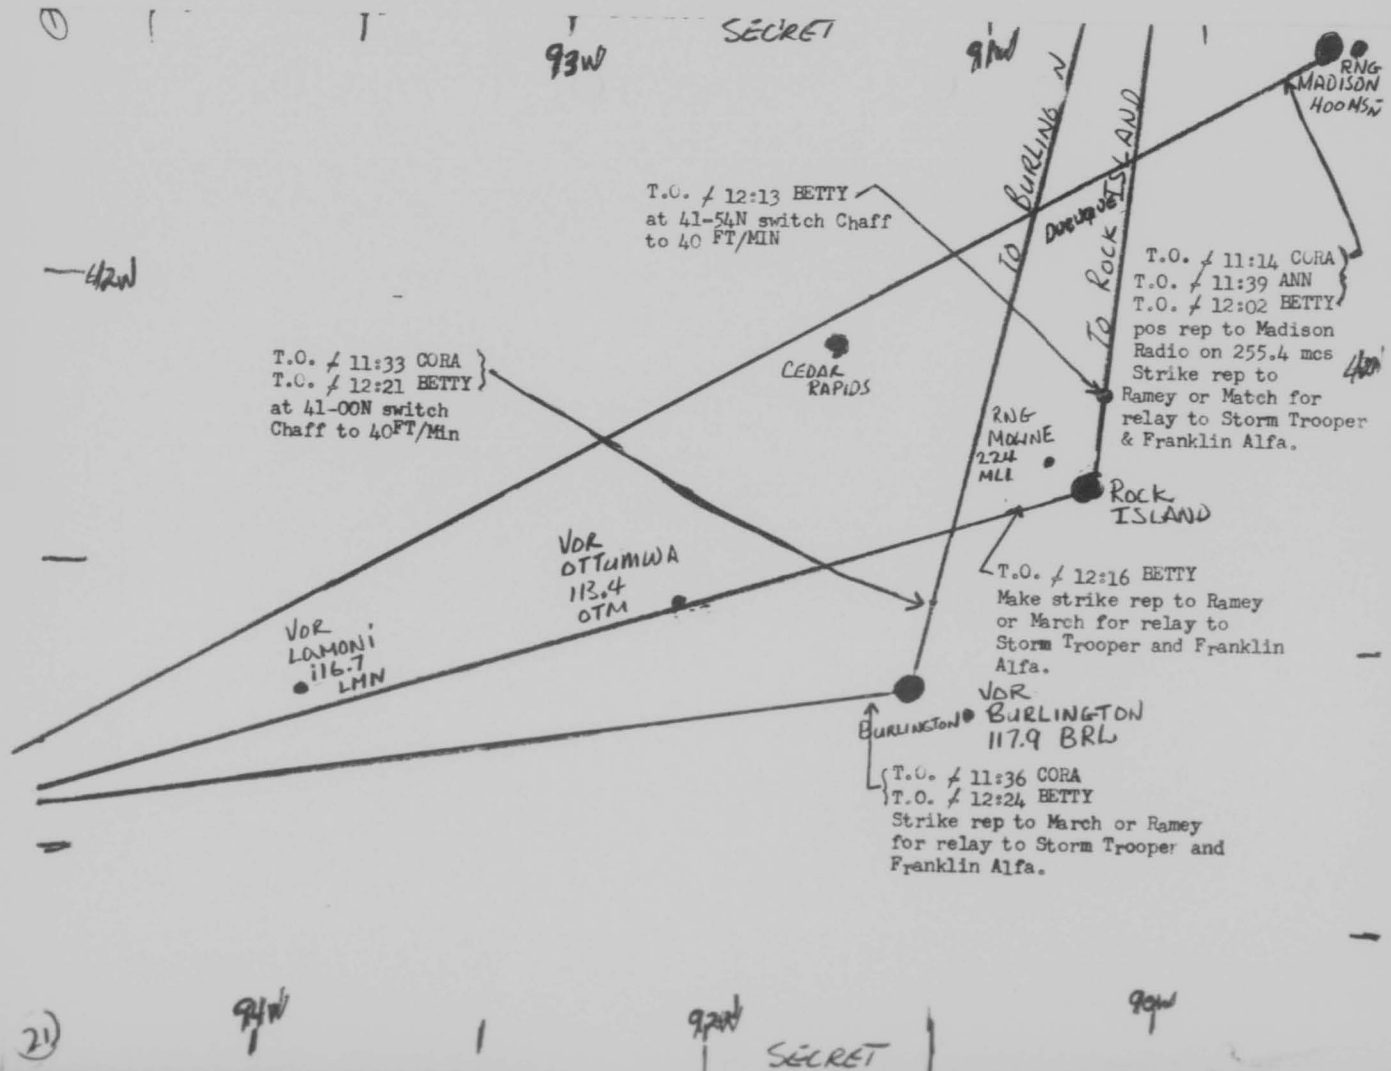 1
SECRET
93W
91W
RNG
MADISON
400 MSN
TO BURLING N
TO ROCK ISLAND
DUBUQUE
T.O. ≠ 12:13 BETTY
at 41-54N switch Chaff
to 40 FT/MIN
42W
T.O. ≠ 11:14 CORA
T.O. ≠ 11:39 ANN
T.O. ≠ 12:02 BETTY
pos rep to Madison
Radio on 255.4 mcs
Strike rep to
Ramey or Match for
relay to Storm Trooper
& Franklin Alfa.
T.O. ≠ 11:33 CORA
T.O. ≠ 12:21 BETTY
at 41-00N switch
Chaff to 40FT/Min
CEDAR
RAPIDS
RNG
MOLINE
224
MLI
ROCK
ISLAND
VOR
OTTUMWA
113.4
OTM
T.O. ≠ 12:16 BETTY
Make strike rep to Ramey
or March for relay to
Storm Trooper and Franklin
Alfa.
VOR
LAMONI
116.7
LMN
BURLINGTON
VOR
BURLINGTON
117.9 BRL
T.O. ≠ 11:36 CORA
T.O. ≠ 12:24 BETTY
Strike rep to March or Ramey
for relay to Storm Trooper and
Franklin Alfa.
94W
92W
90W
21
SECRET